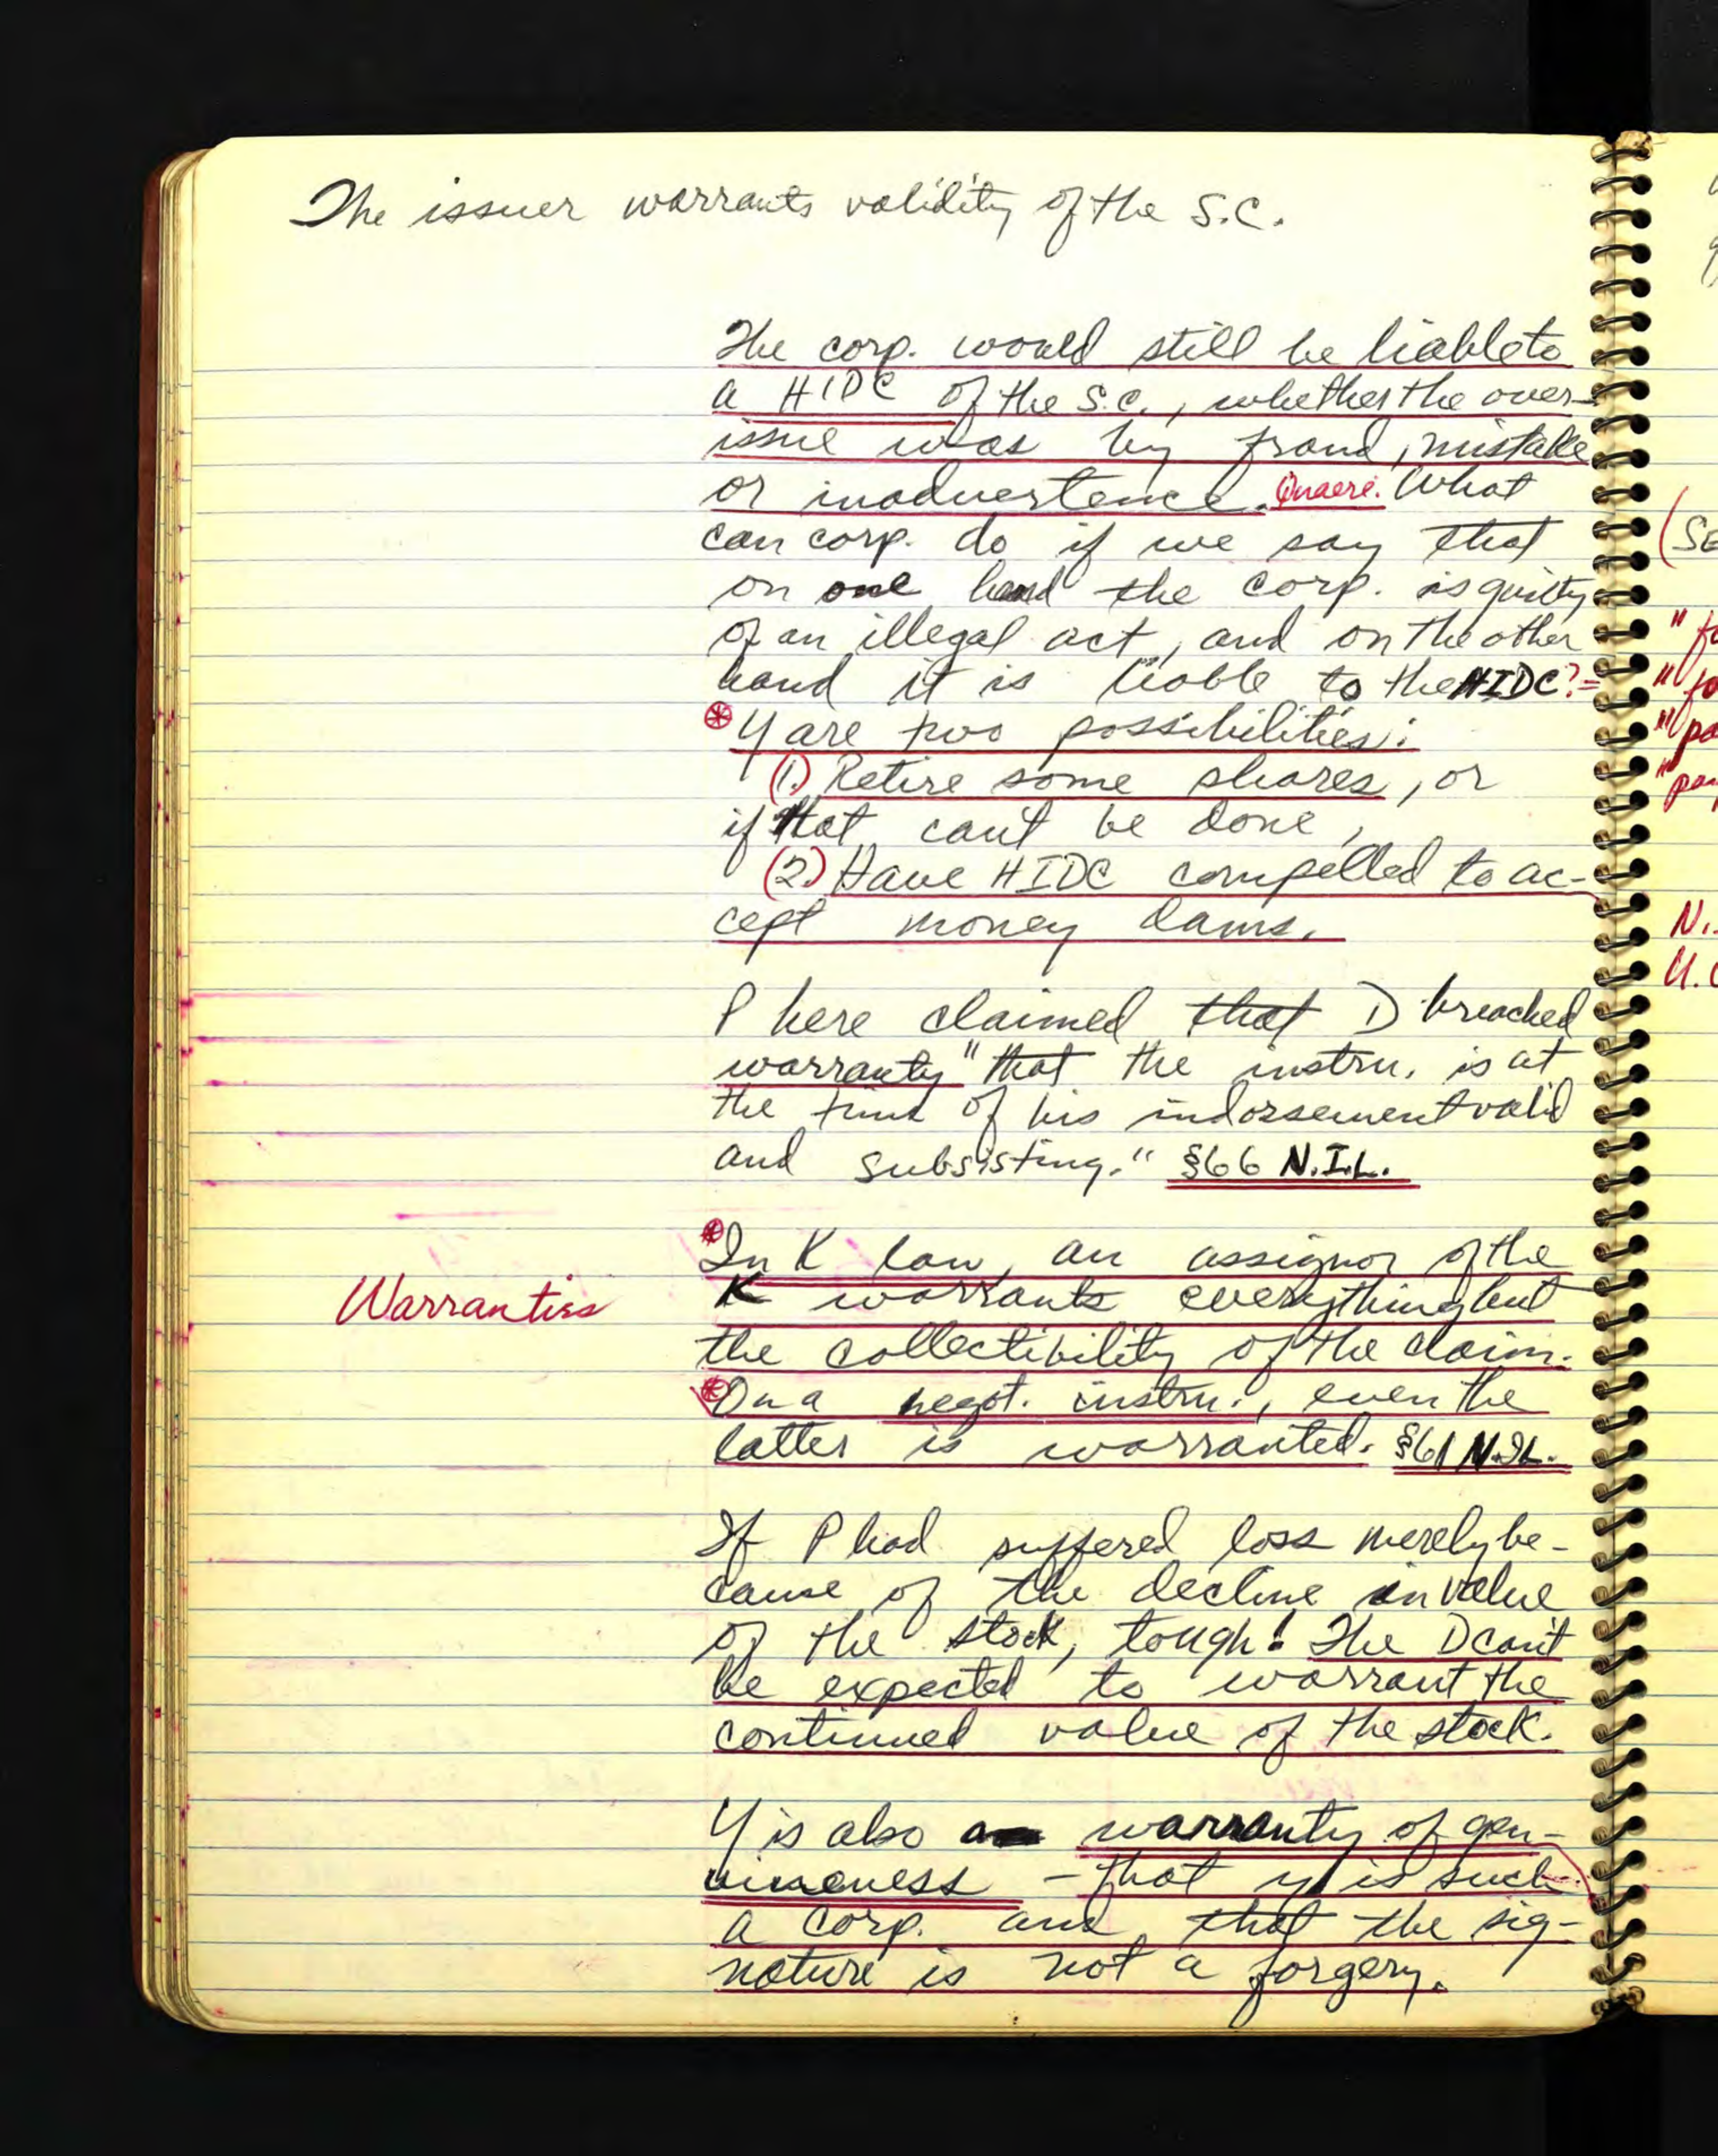 The issuer warrants validity of the S.C.
The corp. would still be liable to
a HIDC of the S.C., whether the over-
issue was by fraud, mistake
or inadvertence. Quaere. What
can corp. do if we say that
on one hand the corp. is guilty
of an illegal act, and on the other
hand it is liable to the HIDC?=
* Y are two possibilities:
(1.) Retire some shares, or
if that can't be done,
(2.) Have HIDC compelled to ac-
cept money dams.
P here claimed that D breached
warranty "that the instru. is at
the time of his indorsement valid
and subsisting." §66 N.I.L.
* In K law, an assignor of the
Warranties
K warrants everything but
the collectibility of the claim.
* On a negot. instru., even the
latter is warranted. §61 N.I.L.
If P had suffered loss merely be-
cause of the decline in value
of the stock, tough! The D can't
be expected to warrant the
continued value of the stock.
Y is also a warranty of gen-
uineness - that y is such
a corp. and that the sig-
nature is not a forgery.
(SE
"fo
"fo
"pa
"pay
N.
U.C